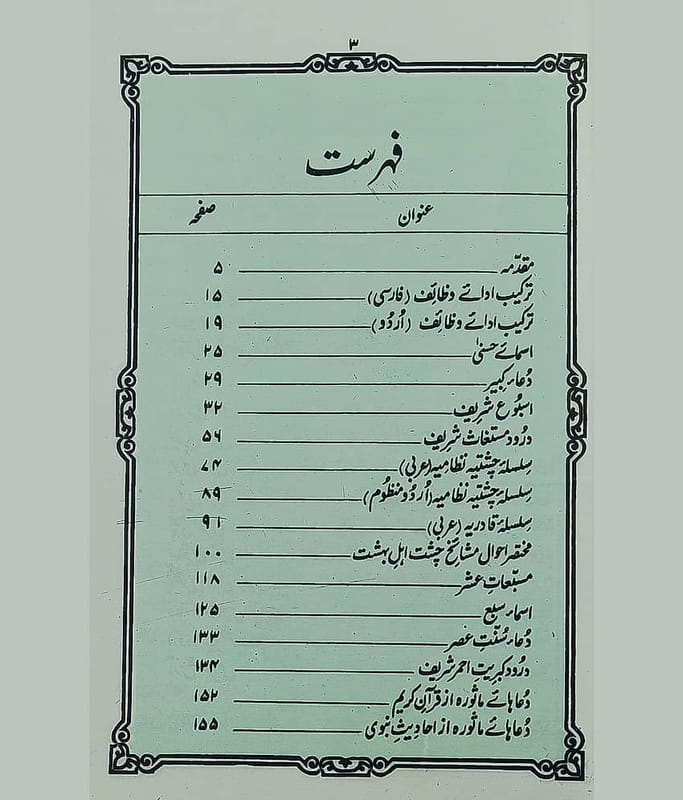 ۳
فہرست
عنوان صفحہ
مقدّمہ ۵
ترکیب ادائے وظائف (فارسی) ۱۵
ترکیب ادائے وظائف (اُردُو) ۱۹
اسمائے حسنیٰ ۲۵
دُعاء کبیر ۲۹
اسبُوع شریف ۳۲
درُود مستغاث شریف ۵۶
سِلسلۂ چشتیہ نظامیہ (عربی) ۷۴
سِلسلۂ چشتیہ نظامیہ (اُردُو منظُوم) ۸۹
سِلسلۂ قادریہ (عربی) ۹۱
مختصر احوال مشائخ چشت اہلِ بہشت ۱۰۰
مسبّعاتِ عشر ۱۱۸
اسماء سبع ۱۲۵
دُعاء سُنّتِ عصر ۱۳۳
درُود کبریتِ احمر شریف ۱۳۴
دُعا ہائے ماثُورہ از قرآنِ کریم ۱۵۲
دُعا ہائے ماثُورہ از احادیثِ نبوی ۱۵۵